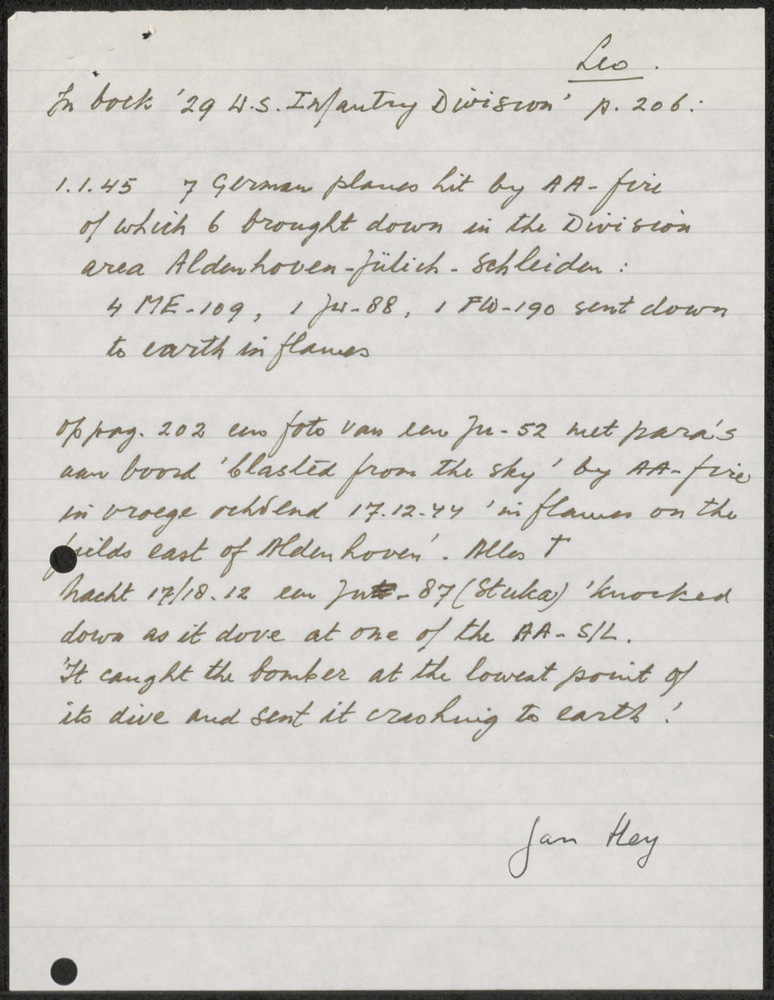 Leo.
In boek '29 U.S. Infantry Division' p. 206:
1.1.45 7 German planes hit by AA-fire
of which 6 brought down in the Division
area Aldenhoven-Jülich-Schleiden:
4 ME-109, 1 Ju-88, 1 FW-190 sent down
to earth in flames
op pag. 202 een foto van een Ju-52 met para's
aan boord 'blasted from the sky' by AA-fire
in vroege ochtend 17.12.44 'in flames on the
fields east of Aldenhoven'. Alles †
Nacht 17/18.12 een Ju - 87 (Stuka) 'knocked
down as it dove at one of the AA-S/L.
'It caught the bomber at the lowest point of
its dive and sent it crashing to earth!
Jan Hey